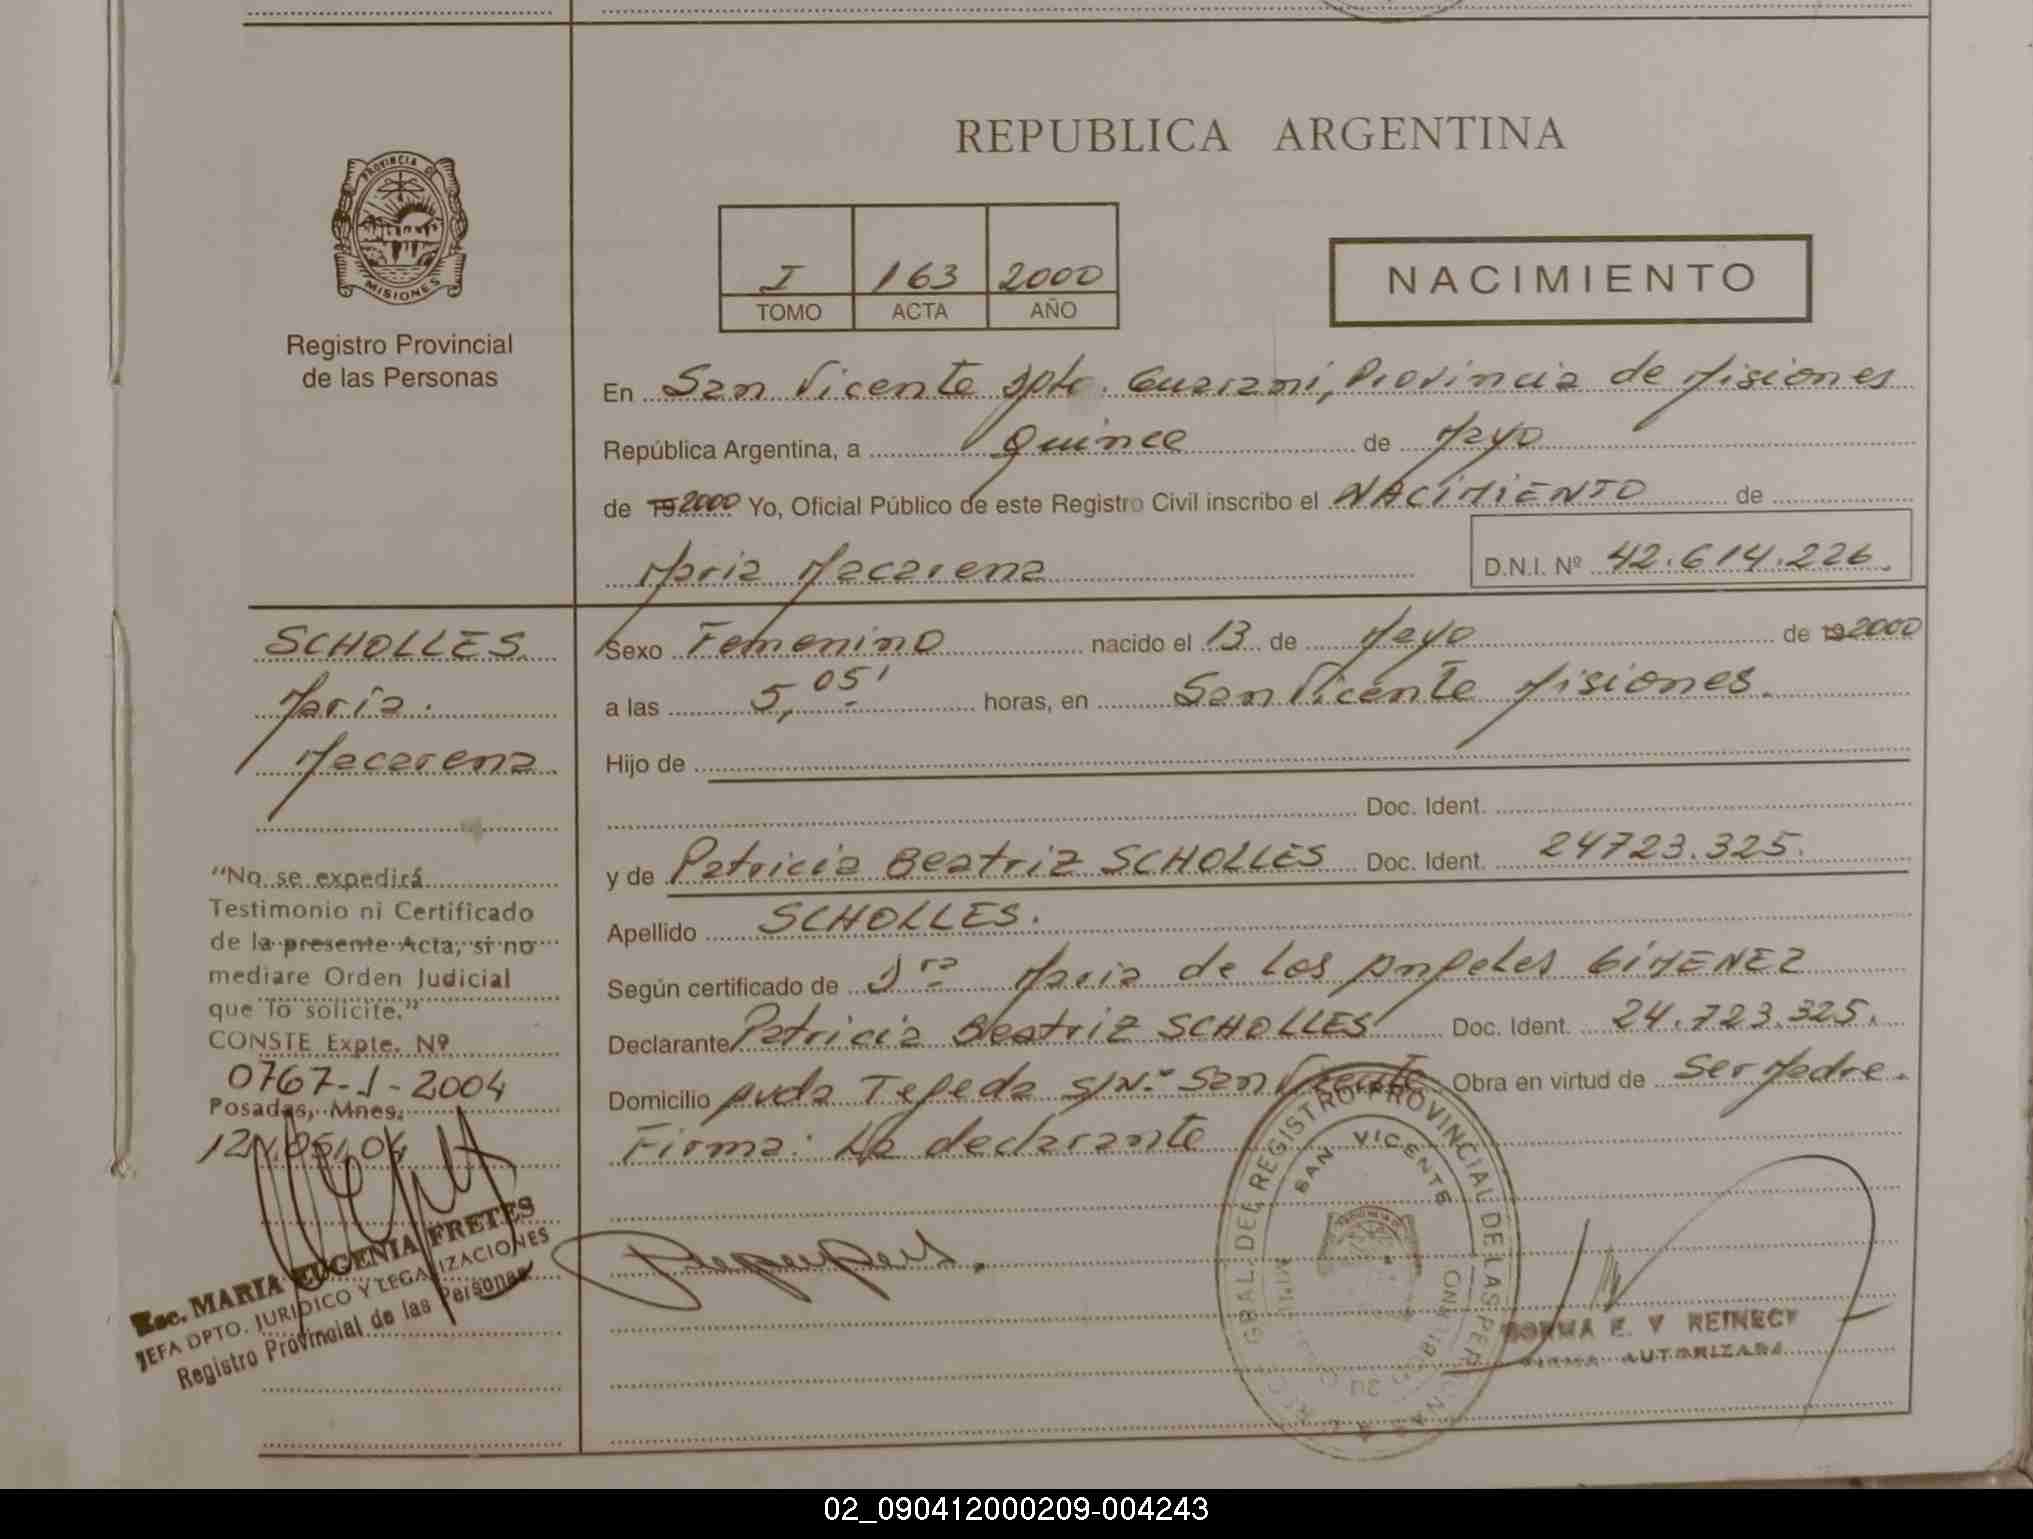 REPUBLICA ARGENTINA
PROVINCIA DE
MISIONES
Registro Provincial
de las Personas
I 163 2000
TOMO ACTA AÑO
NACIMIENTO
En San Vicente Dpto. Guaraní, Provincia de Misiones
República Argentina, a Quince de Mayo
de 19 2000 Yo, Oficial Público de este Registro Civil inscribo el NACIMIENTO de
Maria Macarena D.N.I. Nº 42.614.226.
SCHOLLES
María
Macarena
Sexo Femenino nacido el 13 de Mayo de 19 2000
a las 5,05' horas, en San Vicente Misiones.
Hijo de
Doc. Ident.
y de Patricia Beatriz SCHOLLES Doc. Ident. 24723.325.
Apellido SCHOLLES.
Según certificado de Dra Maria de Los Angeles GIMENEZ
Declarante Patricia Beatriz SCHOLLES Doc. Ident. 24.723.325.
Domicilio Avda Tejeda S/Nº San Vicente Obra en virtud de Ser Madre.
Firma: La declarante
"No se expedirá
Testimonio ni Certificado
de la presente Acta, si no
mediare Orden Judicial
que lo solicite."
CONSTE Expte. Nº
0767-J-2004
Posadas, Mnes.
12/05/04
Esc. MARIA EUGENIA FRETES
JEFA DPTO. JURIDICO Y LEGALIZACIONES
Registro Provincial de las Personas
GRAL. DEL REGISTRO PROVINCIAL DE LAS PERSONAS
SAN VICENTE
NORMA E. V REINECK
FIRMA AUTORIZADA
02_090412000209-004243